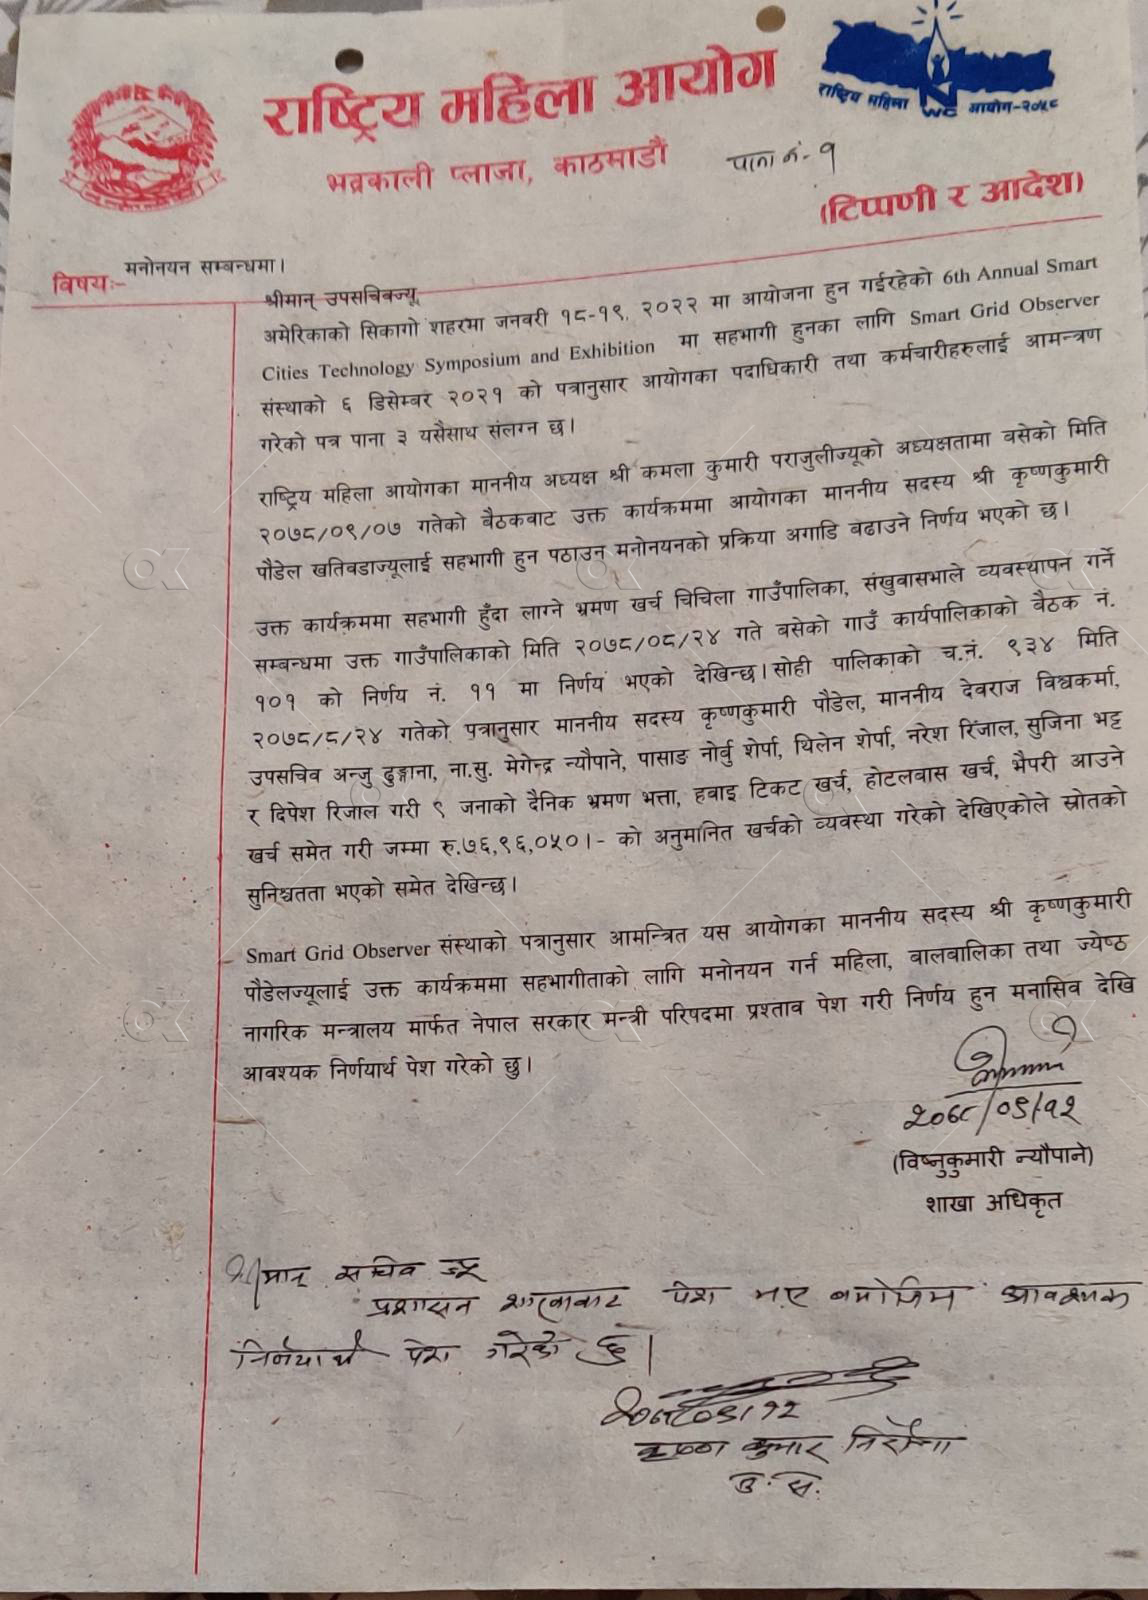 राष्ट्रिय महिला आयोग
राष्ट्रिय महिला आयोग-२०५८
भद्रकाली प्लाजा, काठमाडौं
पाना नं-१
(टिप्पणी र आदेश)
विषयः- मनोनयन सम्बन्धमा।
श्रीमान् उपसचिवज्यू,
अमेरिकाको सिकागो शहरमा जनवरी १८-१९, २०२२ मा आयोजना हुन गईरहेको 6th Annual Smart
Cities Technology Symposium and Exhibition मा सहभागी हुनका लागि Smart Grid Observer
संस्थाको ६ डिसेम्बर २०२१ को पत्रानुसार आयोगका पदाधिकारी तथा कर्मचारीहरुलाई आमन्त्रण
गरेको पत्र पाना ३ यसैसाथ संलग्न छ।
राष्ट्रिय महिला आयोगका माननीय अध्यक्ष श्री कमला कुमारी पराजुलीज्यूको अध्यक्षतामा बसेको मिति
२०७८/०९/०७ गतेको बैठकबाट उक्त कार्यक्रममा आयोगका माननीय सदस्य श्री कृष्णकुमारी
पौडेल खतिवडाज्यूलाई सहभागी हुन पठाउन मनोनयनको प्रक्रिया अगाडि बढाउने निर्णय भएको छ।
उक्त कार्यक्रममा सहभागी हुँदा लाग्ने भ्रमण खर्च चिचिला गाउँपालिका, संखुवासभाले व्यवस्थापन गर्ने
सम्बन्धमा उक्त गाउँपालिकाको मिति २०७८/०८/२४ गते बसेको गाउँ कार्यपालिकाको बैठक नं.
१०१ को निर्णय नं. ११ मा निर्णय भएको देखिन्छ।सोही पालिकाको च.नं. ९३४ मिति
२०७८/८/२४ गतेको पत्रानुसार माननीय सदस्य कृष्णकुमारी पौडेल, माननीय देवराज विश्वकर्मा,
उपसचिव अन्जु ढुङ्गाना, ना.सु. मेगेन्द्र न्यौपाने, पासाङ नोर्बु शेर्पा, थिलेन शेर्पा, नरेश रिजाल, सुजिना भट्ट
र दिपेश रिजाल गरी ९ जनाको दैनिक भ्रमण भत्ता, हवाइ टिकट खर्च, होटलबास खर्च, भैपरी आउने
खर्च समेत गरी जम्मा रु.७६,९६,०५०।- को अनुमानित खर्चको व्यवस्था गरेको देखिएकोले स्रोतको
सुनिश्चतता भएको समेत देखिन्छ।
Smart Grid Observer संस्थाको पत्रानुसार आमन्त्रित यस आयोगका माननीय सदस्य श्री कृष्णकुमारी
पौडेलज्यूलाई उक्त कार्यक्रममा सहभागीताको लागि मनोनयन गर्न महिला, बालबालिका तथा ज्येष्ठ
नागरिक मन्त्रालय मार्फत नेपाल सरकार मन्त्री परिषदमा प्रश्ताव पेश गरी निर्णय हुन मनासिव देखि
आवश्यक निर्णयार्थ पेश गरेको छु।
२०७८/०९/१२
(विष्नुकुमारी न्यौपाने)
शाखा अधिकृत
श्रीमान् सचिव ज्यू
प्रशासन शाखाबाट पेश भए बमोजिम आवश्यक
निर्णयार्थ पेश गरेको छु।
२०७८/०९/१२
कृष्ण कुमार निरौला
उ. स.